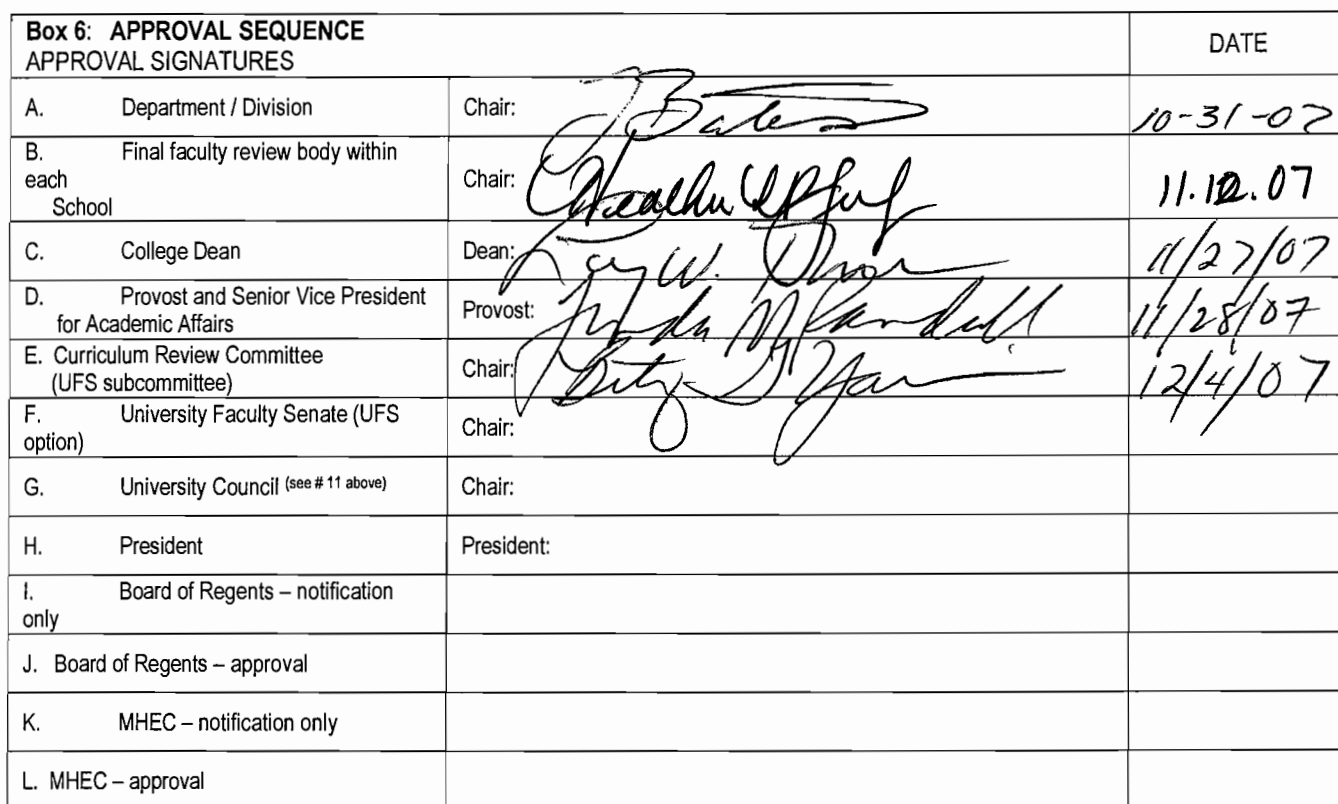 Box 6: APPROVAL SEQUENCE
APPROVAL SIGNATURES
DATE
A. Department / Division Chair: Bates 10-31-07
B. Final faculty review body within
each
School
Chair: 11.12.07
C. College Dean Dean: W. 11/27/07
D. Provost and Senior Vice President
for Academic Affairs
Provost: 11/28/07
E. Curriculum Review Committee
(UFS subcommittee)
Chair: 12/4/07
F. University Faculty Senate (UFS
option)
Chair:
G. University Council (see # 11 above) Chair:
H. President President:
I. Board of Regents – notification
only
J. Board of Regents – approval
K. MHEC – notification only
L. MHEC – approval